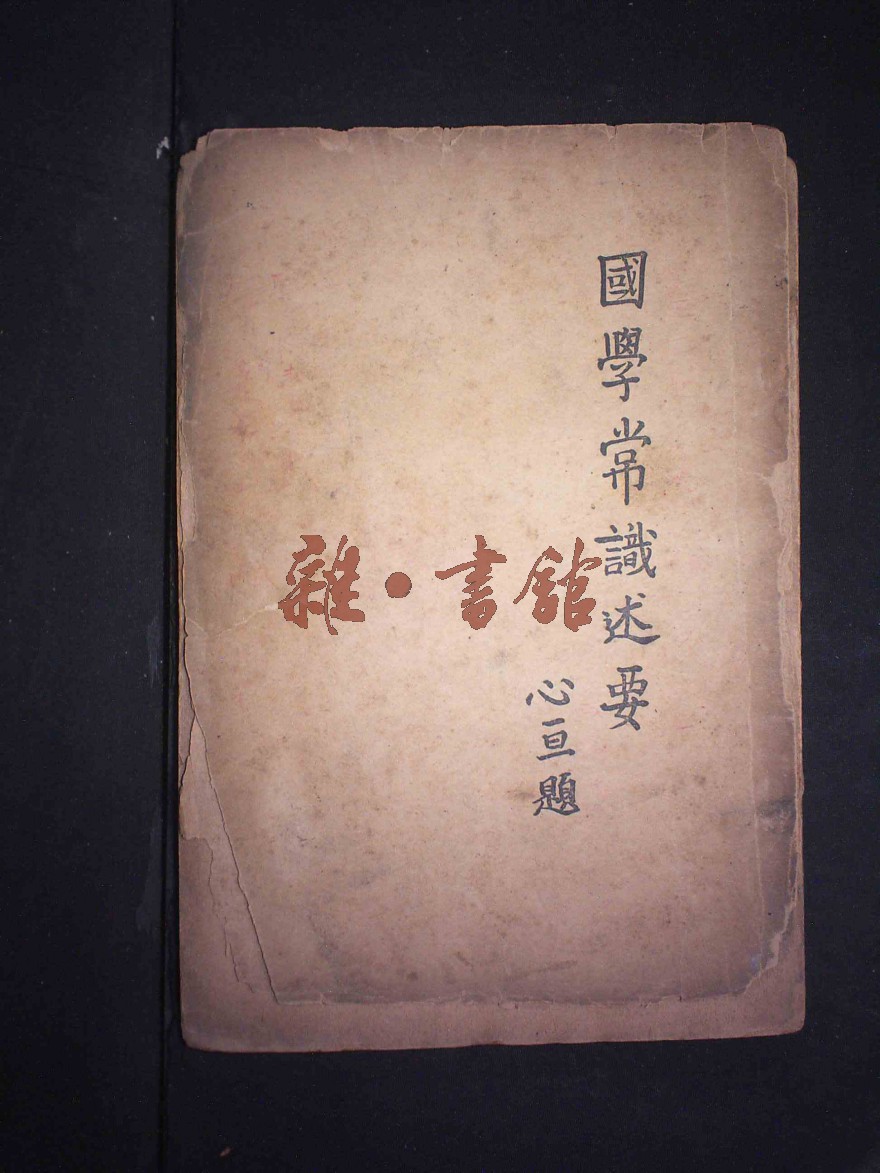 國學常識述要
心亘題
雜·書館